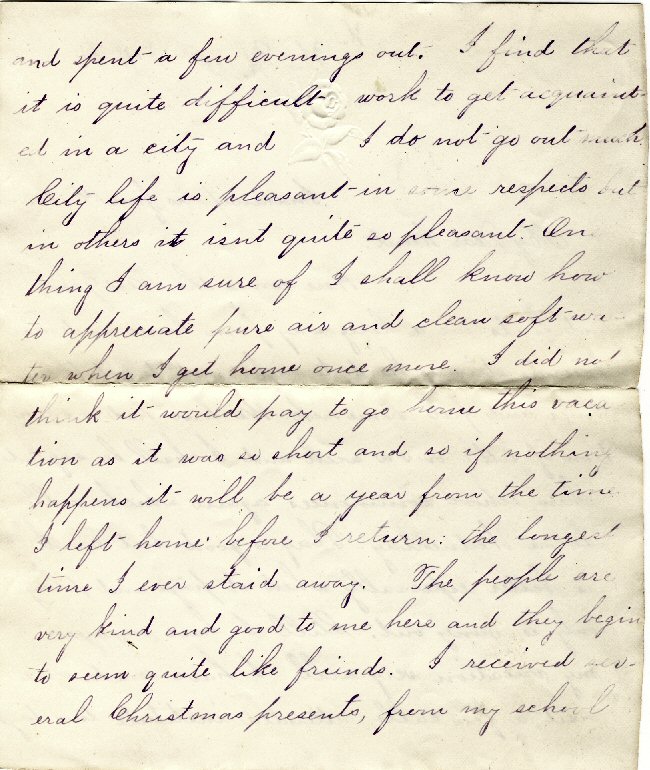 and spent a few evenings out. I find that
it is quite difficult work to get acquaint-
ed in a city and I do not go out much
City life is pleasant in some respects but
in others it isnt quite so pleasant. On
thing I am sure of I shall know how
to appreciate pure air and clean soft wa-
ter when I get home once more. I did not
think it would pay to go home this vaca
tion as it was so short and so if nothing
happens it will be a year from the time
I left home before I return: the longest
time I ever staid away. The people are
very kind and good to me here and they begin
to seem quite like friends. I received sev-
eral Christmas presents, from my school